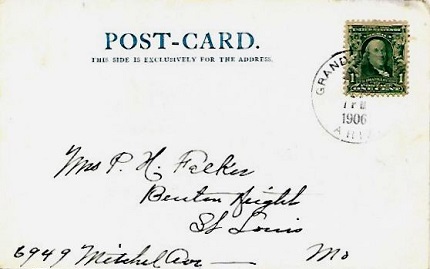 POST-CARD.
THIS SIDE IS EXCLUSIVELY FOR THE ADDRESS.
GRAND
1906
ARIZ
1 1
ONE CENT
Mrs P. H. Falker
Benton Height
St Louis
6949 Mitchel Ave Mo